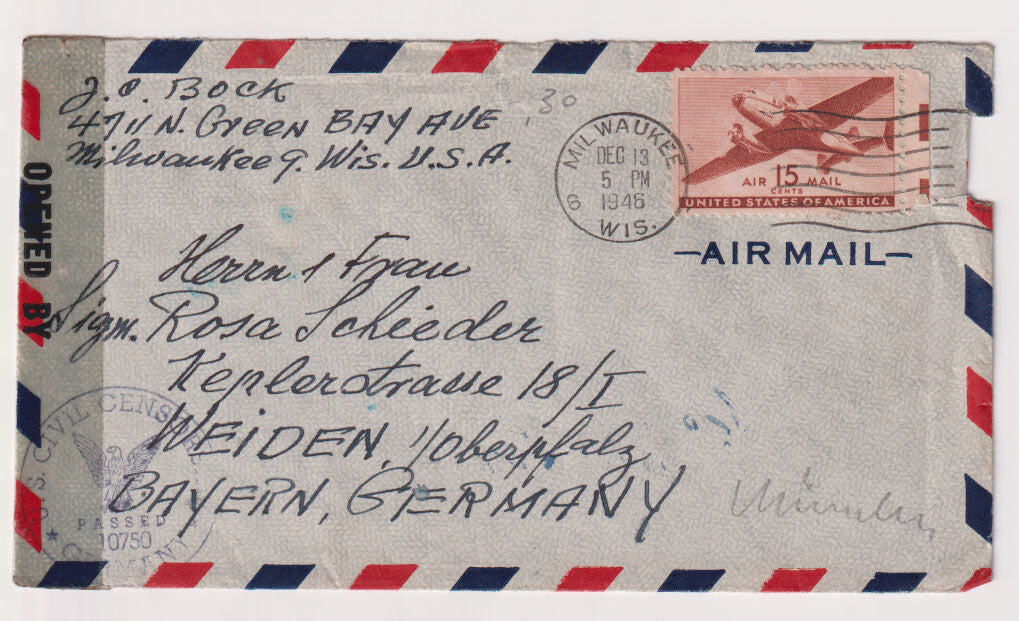 J. C. Bock
4711 N. Green BAY AVE
Milwaukee 9. Wis. U.S.A.
,30
MILWAUKEE
DEC 13
5 PM
1946
6 WIS.
AIR 15 MAIL
CENTS
UNITED STATES OF AMERICA
AIR MAIL
OPENED BY
Herrn & Frau
Sigm. Rosa Schieder
Keplerstrasse 18/I
WEIDEN, i/Oberpfalz
BAYERN, GERMANY
U.S. CIVIL CENSORSHIP
PASSED
10750
GERMANY